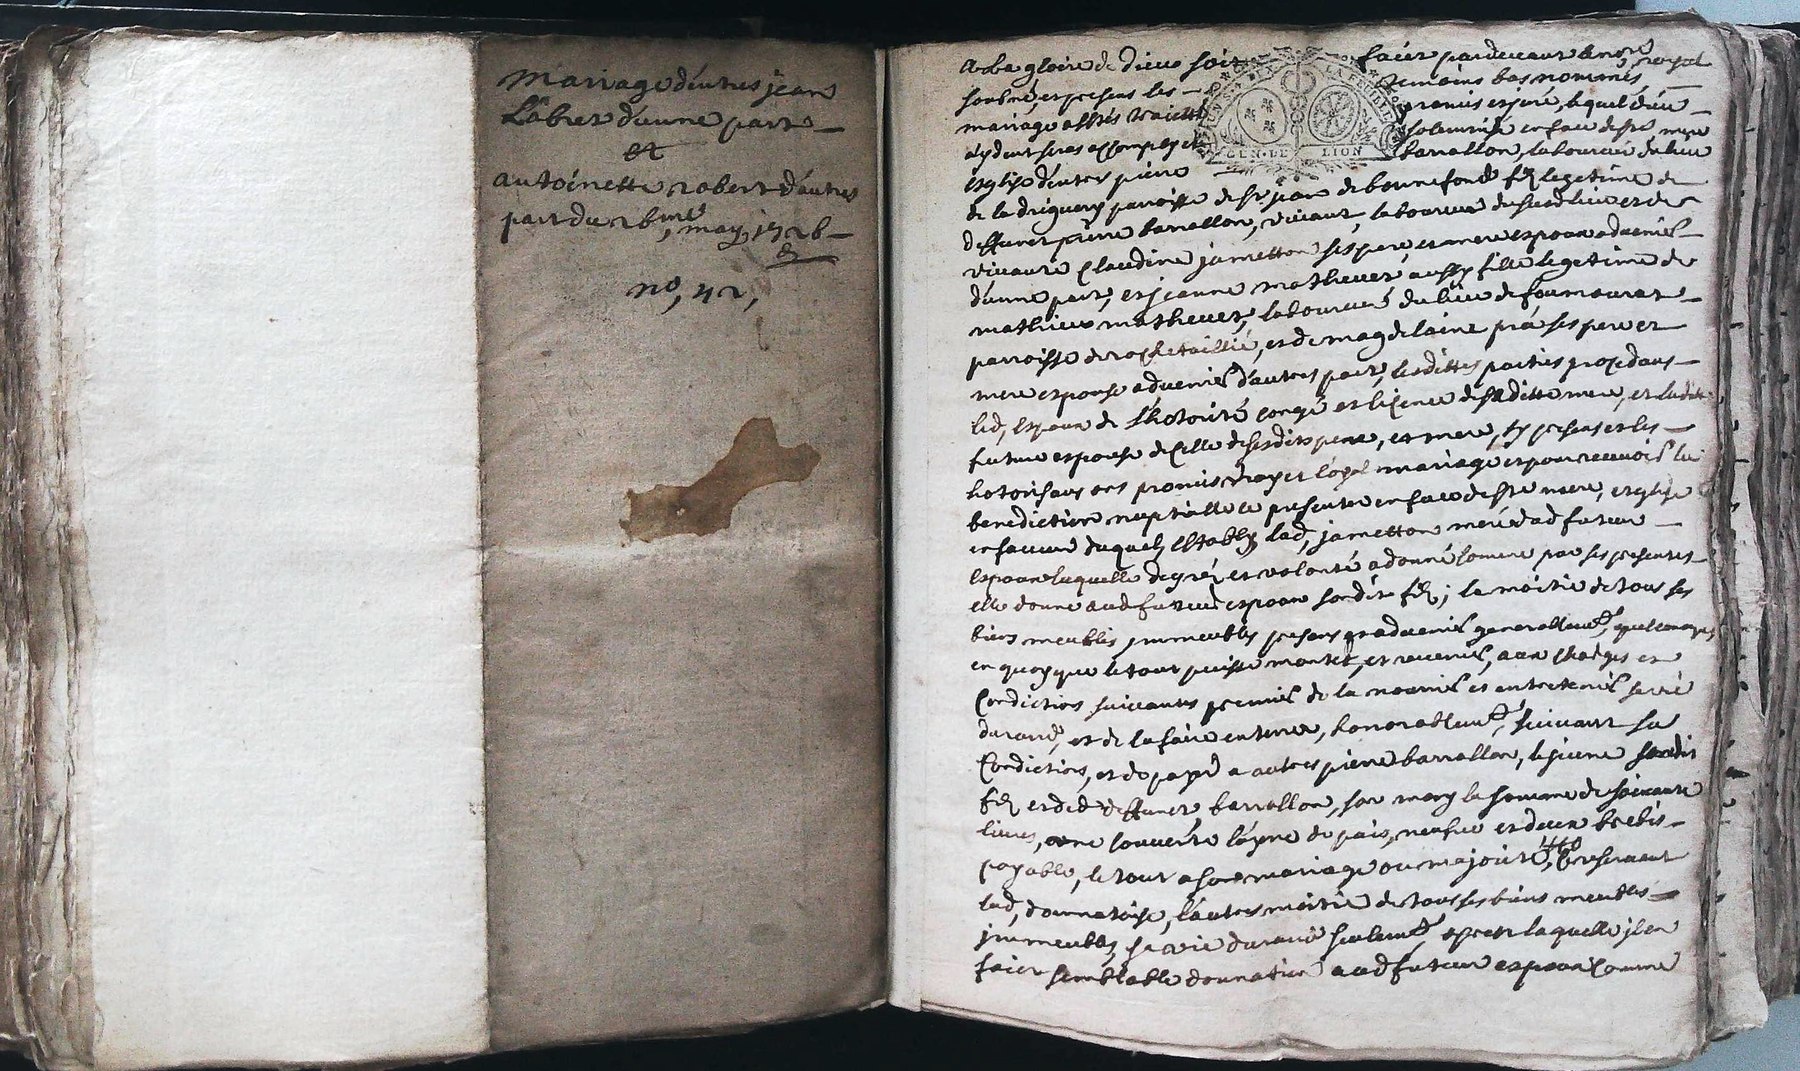 Mariage d'entres jean
Labret d'une part
et
antoinette robert d'autres
part du 26me, may, 1726
no, 42,
A La gloire de Dieu soit faict pardevant le notre royal
soubné, et presens les temoins bas nommés
mariage a esté traicté promis et juré, lequel dieu
aydant seras accomply et solennisé en face de ste mere
esglise d'entre pierre barrallon, laboureur du lieu
GEN. DE LION
de la driguery parroisse de st jean de bonnefond fils legetime de
deffunct pierre barrallon, vivant, laboureur dususd lieu et de
vivante Claudine jametton ses pere, et mere espoux advenir
d'une part, et jeanne mathevet, aussy fille legetime de
mathieu mathevet, laboureur du lieu de foumourat
parroisse de rochetaillié, et de magdelaine pra ses pere et
mere espouse advenir d'autres part, lesdittes parties procedans
led, espoux de l'hotorité congé et liçence de saditte mere, et laditte
future espouse de Celle desesdits pere, et mere, sy presens et les
hotorisans ont promis vray et loyal mariage et pour recevoir la
benediction nuptialle ce presenter en face de ste mere, esglise
en faveur duquel, establye lad, jametton mere dud futeur
espoux laquelle de gré, et volonté a donné comme par ses presentes
elle donne aud futeur espoux sondit fils; la moitié de tous ses
biens meubles, jmmeubles presens et advenir generallemt, quelconques
en quoy que le tout puisse monter, et revenir, aux charges et
Condictions suivantes premier de la nourrir et entretenir sa vie
durand, et de la faire enterrer, honorablemt, suivant sa
Condiction, et de payer a autres pierre barrallon, le jeune sondit
fils et dud deffunct barrallon, son mary la somme de soixante
livres, une couverte layne de pais, neufve et deux brebis
payable, le tout a son mariage ou majorité, se reservant
lad, donnatrise, l'autres moitié de tous ses biens meubles
jmmeubles, sa vie durand seulemt, apres laquelle jl en
faict semblable donnation aud futeur espoux Comme